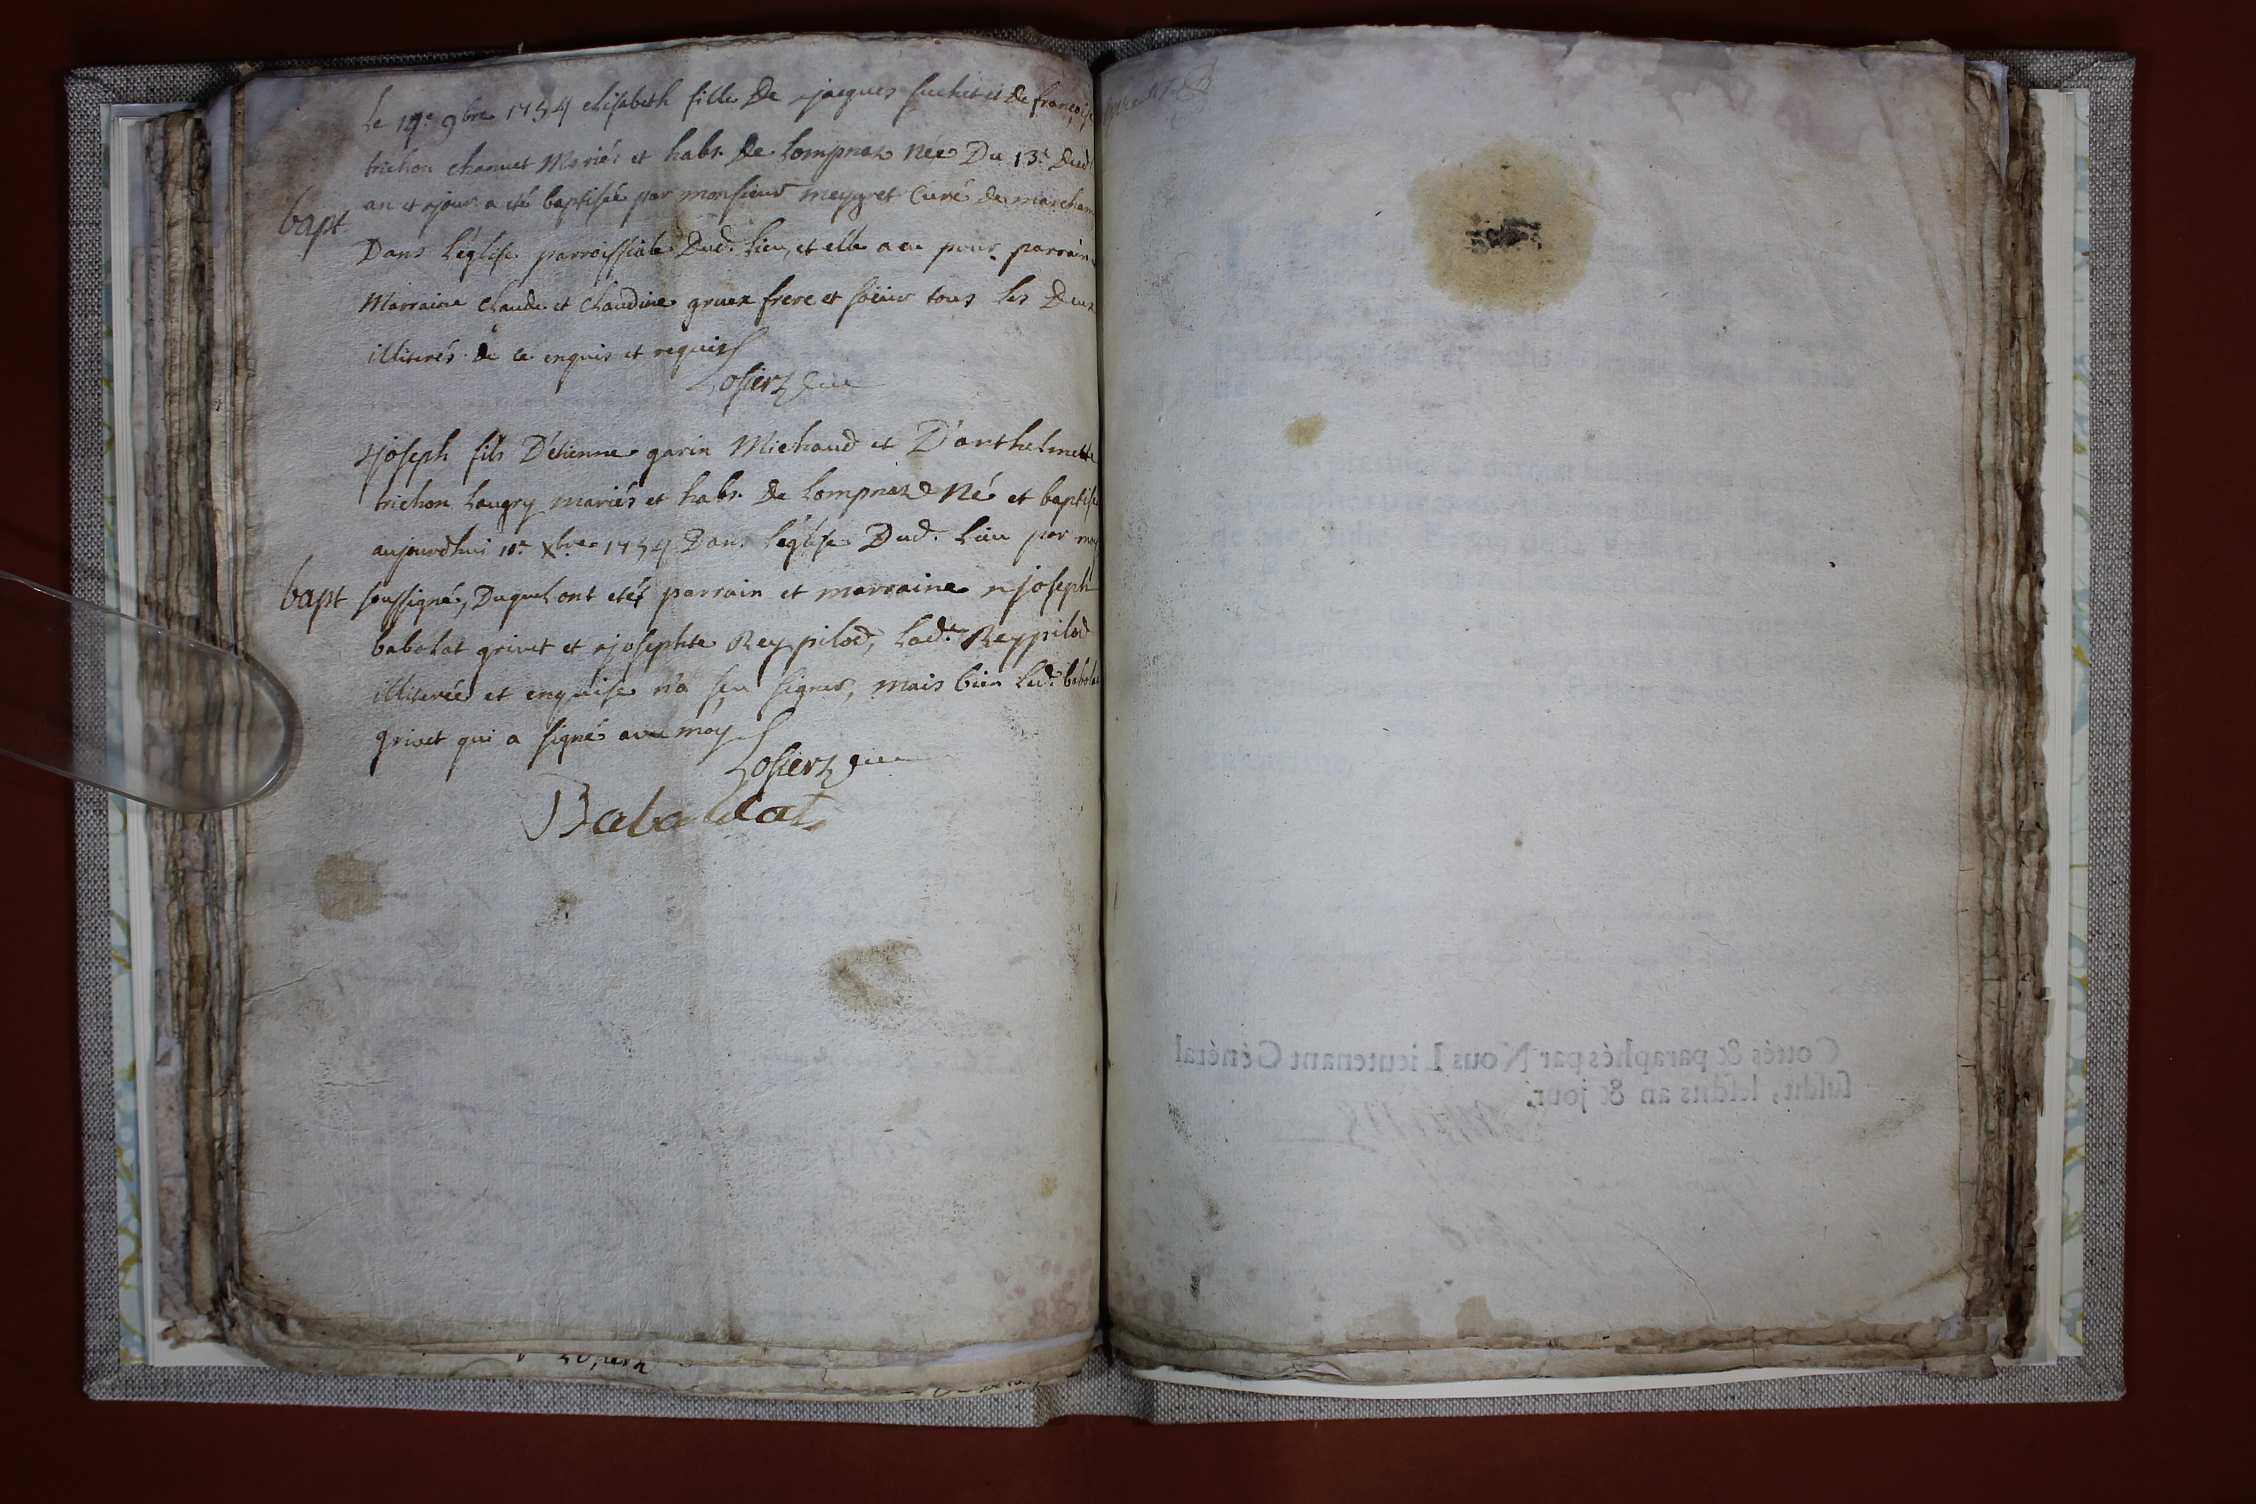 Le 14.e 9bre 1754 elisabeth fille De jacques suchet et de françoise
trichon chanuet Mariés et habt. De Lompnas née Du 13.e Dud.
bapt
an et jour a eté baptisée par monsieur meygret Curé de marcham
Dans l'église parroissiale Dud. Lieu, et elle a eu pour parrain
Marraine Claude et Claudine gruex frere et sœur tous les Deux
illiterés de ce enquis et requis
Losierz curé
joseph fils D'etienne garin Michaud et D'anthelmette
trichon Laugry mariés et habt. De Lompnas Né et baptisé
aujourdhui 10.e Xbre 1754 Dans l'église Dud. Lieu par moy
bapt
soussigné, Duquel ont etés parrain et marraine joseph
babolat grivet et josephte Rey pilod, Lad.te Rey pilod
illiterée et enquise n'a sçu signer, mais bien Led. babolat
grivet qui a signé avec moy
Losierz curé
Babolat
Cottés & paraphés par Nous Lieutenant Général
susdit, lesdits an & jour.